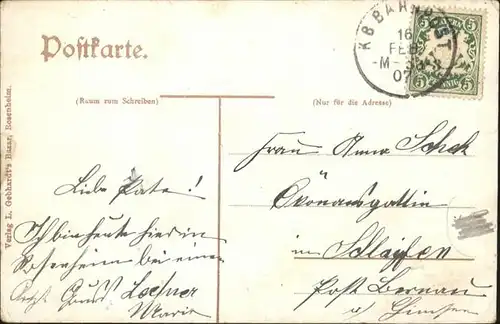 Postkarte.
K.B.BAHNPOST
16
FEB
07
5 5
5 5
(Raum zum Schreiben)
(Nur für die Adresse)
Verlag L. Gebhardt's Bazar, Rosenheim.
Liebe Pate!
Ich bin heute hier in
Rosenheim bei einer
Gruß
Marie
Frau Anna Schek
Ökonomsgattin
in
Post Bernau